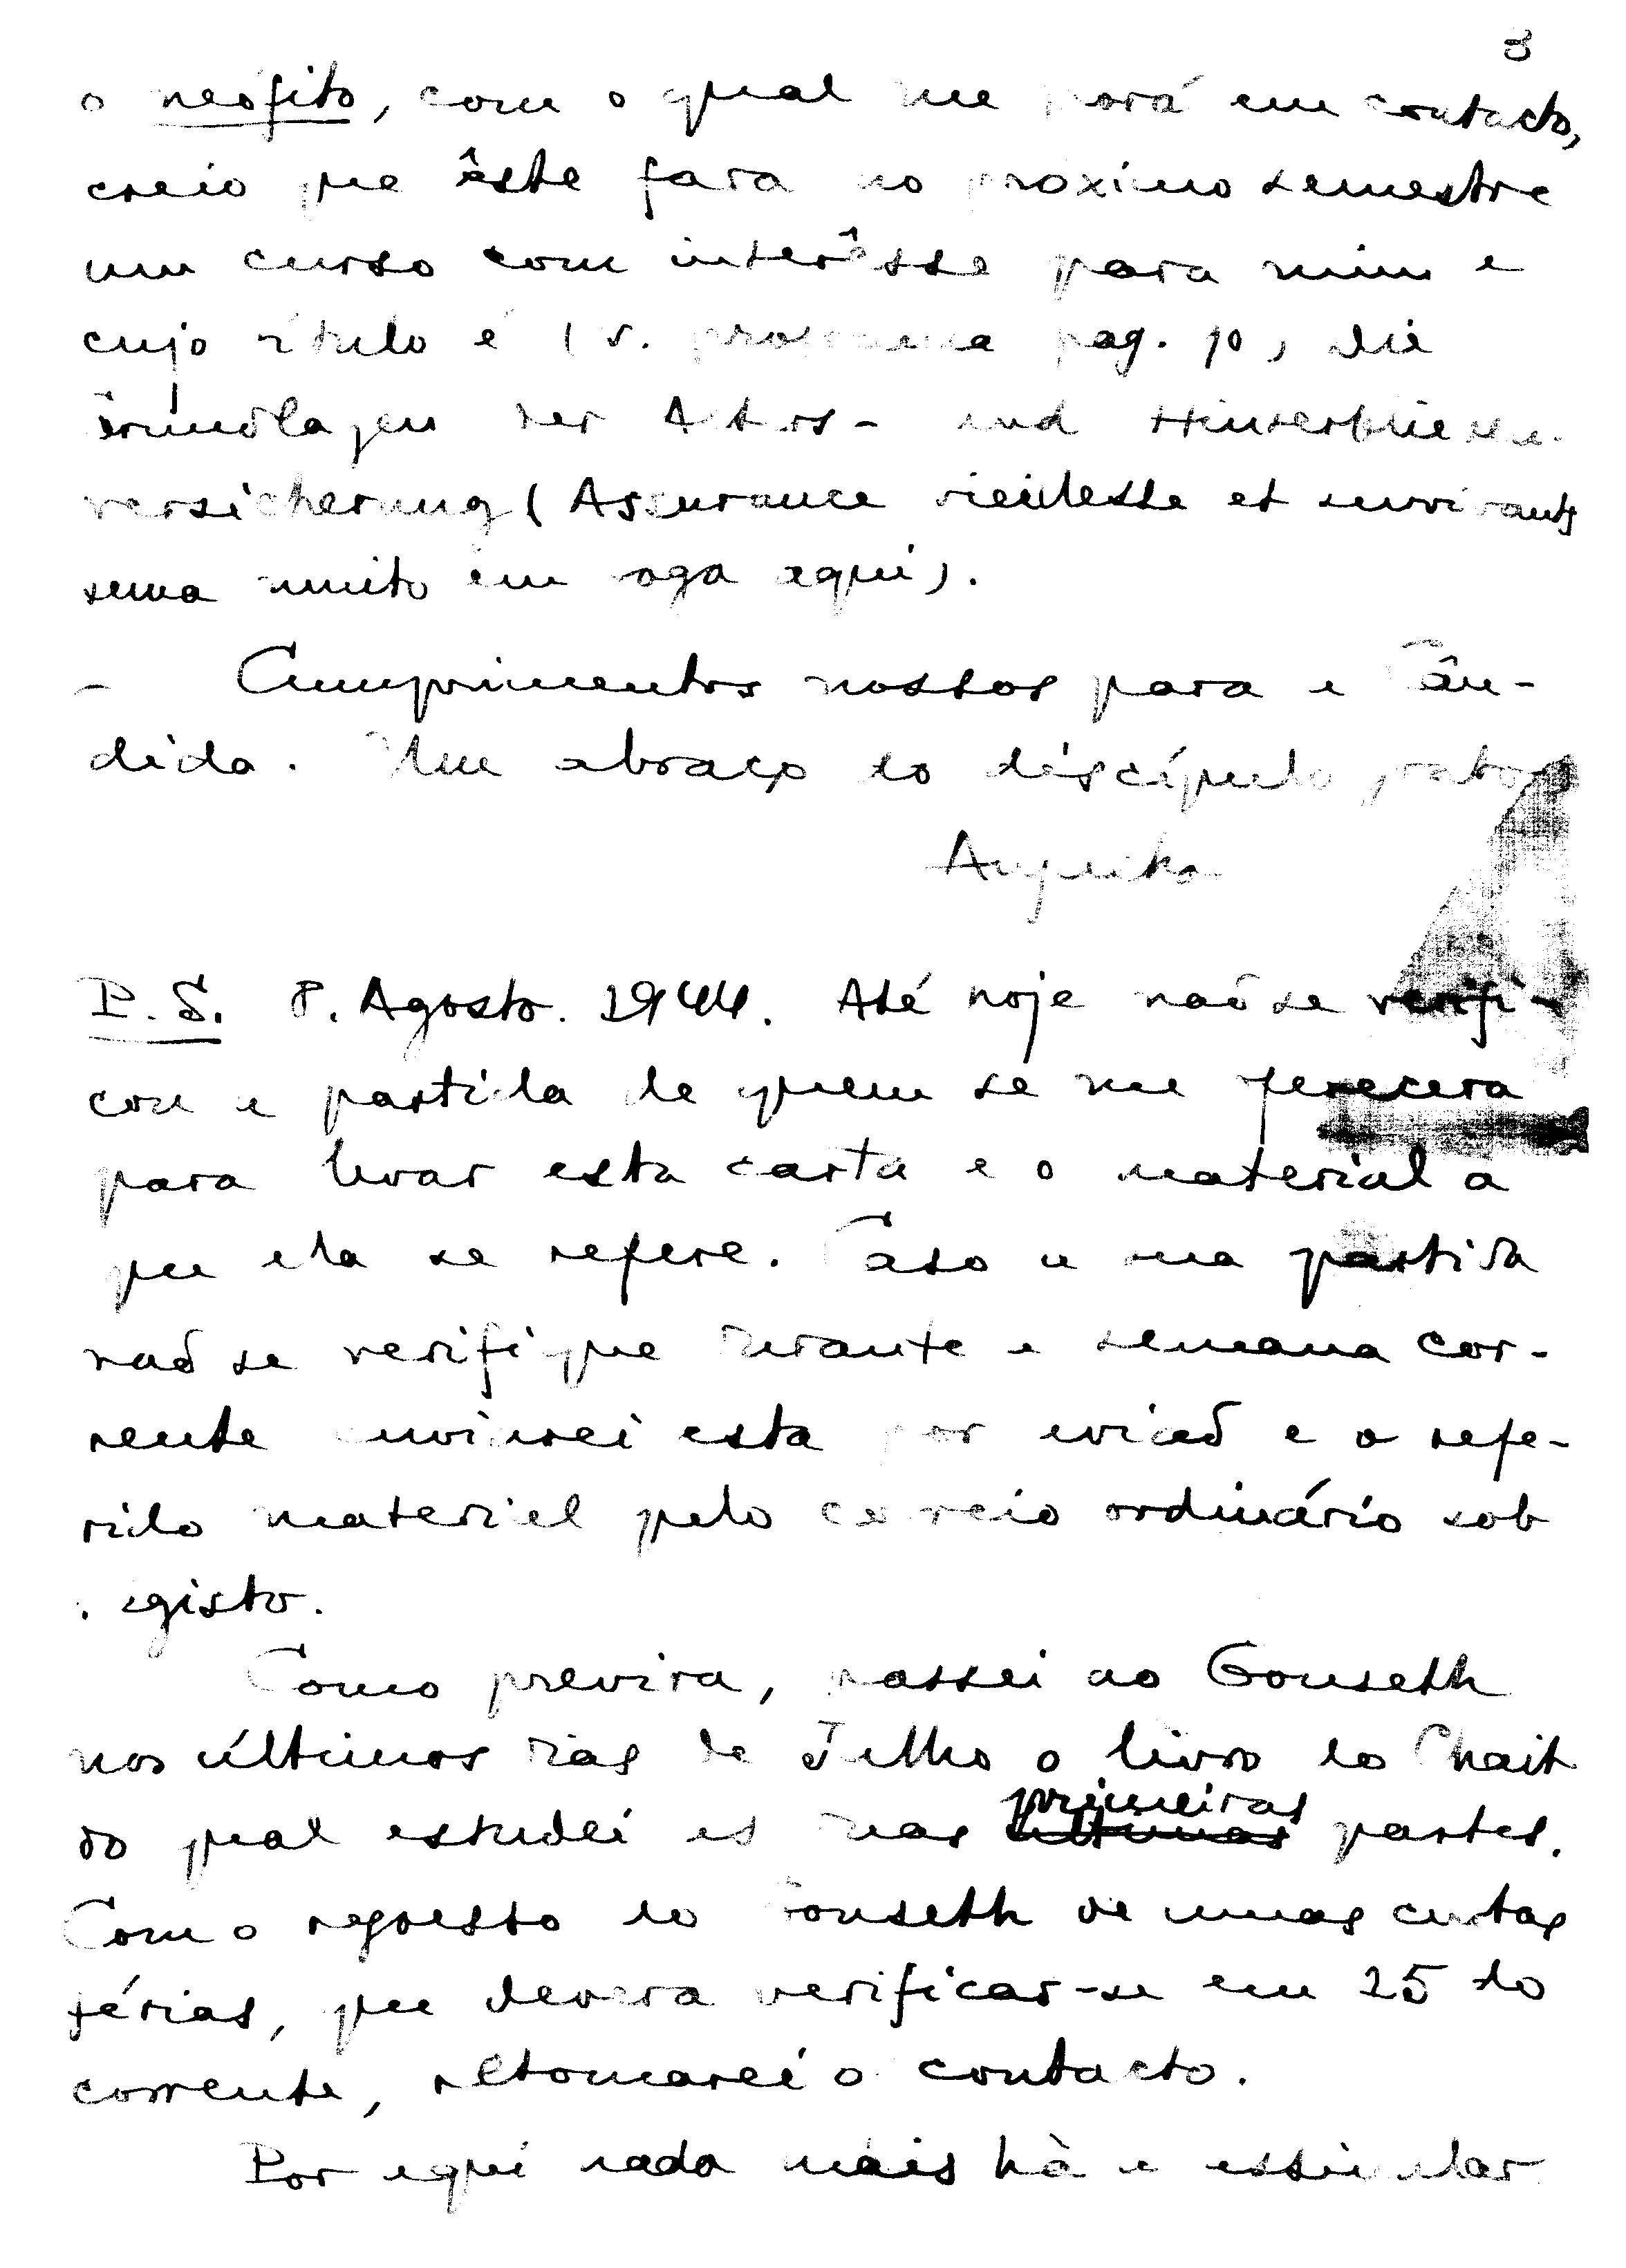 3
o neófito, com o qual me porá em contacto,
creio que êste fará no próximo semestre
um curso com interêsse para mim e
cujo título é (v. programa pag. 10) die
Grundlagen der Alters- und Hinterbliebenen-
versicherung (Assurance vieillesse et survivants
tema muito em voga aqui).
- Cumprimentos nossos para a Cân-
dida. Um abraço do discípulo grato
P.S. 8. Agosto. 1944. Até hoje não se verifi-
cou a partida de quem se me oferecera
para levar esta carta e o material a
que ela se refere. Caso a sua partida
não se verifique durante a semana cor-
rente enviarei esta por avião e o refe-
rido material pelo correio ordinário sob
registo.
Como previra, passei ao Gonseth
nos últimos dias de Julho o livro do Chait
do qual estudei as duas primeiras partes.
Com o regresso do Gonseth de umas curtas
férias, que deverá verificar-se em 25 do
corrente, retomarei o contacto.
Por aqui nada mais há a assinalar